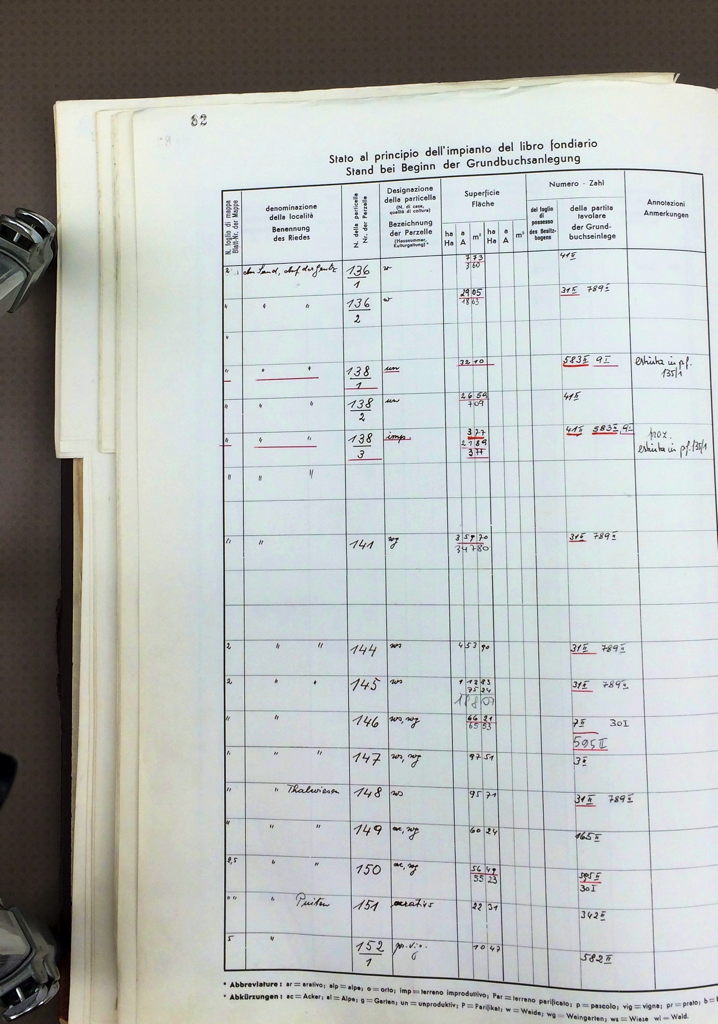 82
Stato al principio dell'impianto del libro fondiario
Stand bei Beginn der Grundbuchsanlegung
N. foglio di mappa
Blatt-Nr. der Mappe
denominazione
della località
Benennung
des Riedes
N. della particella
Nr. der Parzelle
Designazione
della particella
(N. di casa,
qualità di coltura)
Bezeichnung
der Parzelle
(Hausnummer,
Kulturgattung)*
Superficie
Fläche
ha a m² ha a m²
Ha A Ha A
Numero - Zahl
del foglio
di
possesso
des Besitz-
bogens
della partita
tavolare
der Grund-
buchseinlage
Annotazioni
Anmerkungen
2 136/1 w 7 73 41 II
3 60
" " " 136/2 w 29 05 31 II 789 II
18 63
"
" " " 138/1 un 32 10 583 II 9 I estinta in pf. 135/1
" " " 138/2 un 26 59 41 II
7 09
" " " 138/3 imp. 3 77 41 II 583 II 9 I
21 89 estinta in pf. 135/1
3 77
" " "
" " 141 wg 3 59 70 31 II 789 II
3 47 80
2 " " 144 ws 4 53 90 31 II 789 II
2 " " 145 ws 1 12 83 31 II 789 II
75 24
" " " 146 ws, wg 66 21 7 II 30 I
65 53 595 II
" " " 147 ws, wg 97 51 3 II
" " Thalwiesen 148 ws 95 71 31 II 789 II
" " " 149 ac, wg 60 24 165 II
2,5 " " 150 ac, wg 56 49 595 II
55 23 30 I
" " " 151 22 31 342 II
5 " 152/1 10 47 582 II
* Abbreviature: ar = arativo; alp = alpe; o = orto; imp = terreno improduttivo; Par = terreno parificato; p = pascolo; vig = vigna; pr = prato; b =
* Abkürzungen: ac = Acker; al = Alpe; g = Garten; un = unproduktiv; P = Parifikat; w = Weide; wg = Weingarten; ws = Wiese wl = Wald.